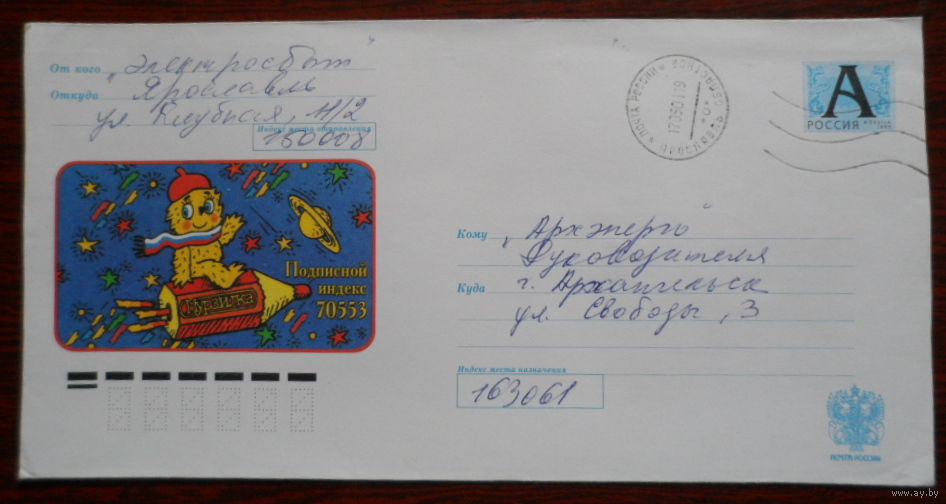 От кого „Электросбыт"
Откуда Ярославль
ул. Клубная, 11/2
Индекс места отправления
150008
ПОЧТА РОССИИ
ЯРОСЛАВЛЬ
170601 19
А
РОССИЯ
Мурзилка
Подписной
индекс
70553
Кому „Архэнерго"
Руководителя
Куда г. Архангельск
ул. Свободы, 3
Индекс места назначения
163061
ПОЧТА РОССИИ
www.ay.by